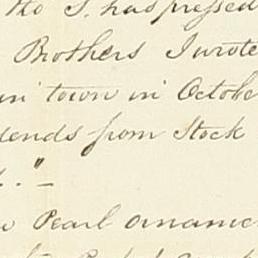 the S. has pressed
Brothers I wrote
in town in Octobe
dends from Stock
."
Pearl orname